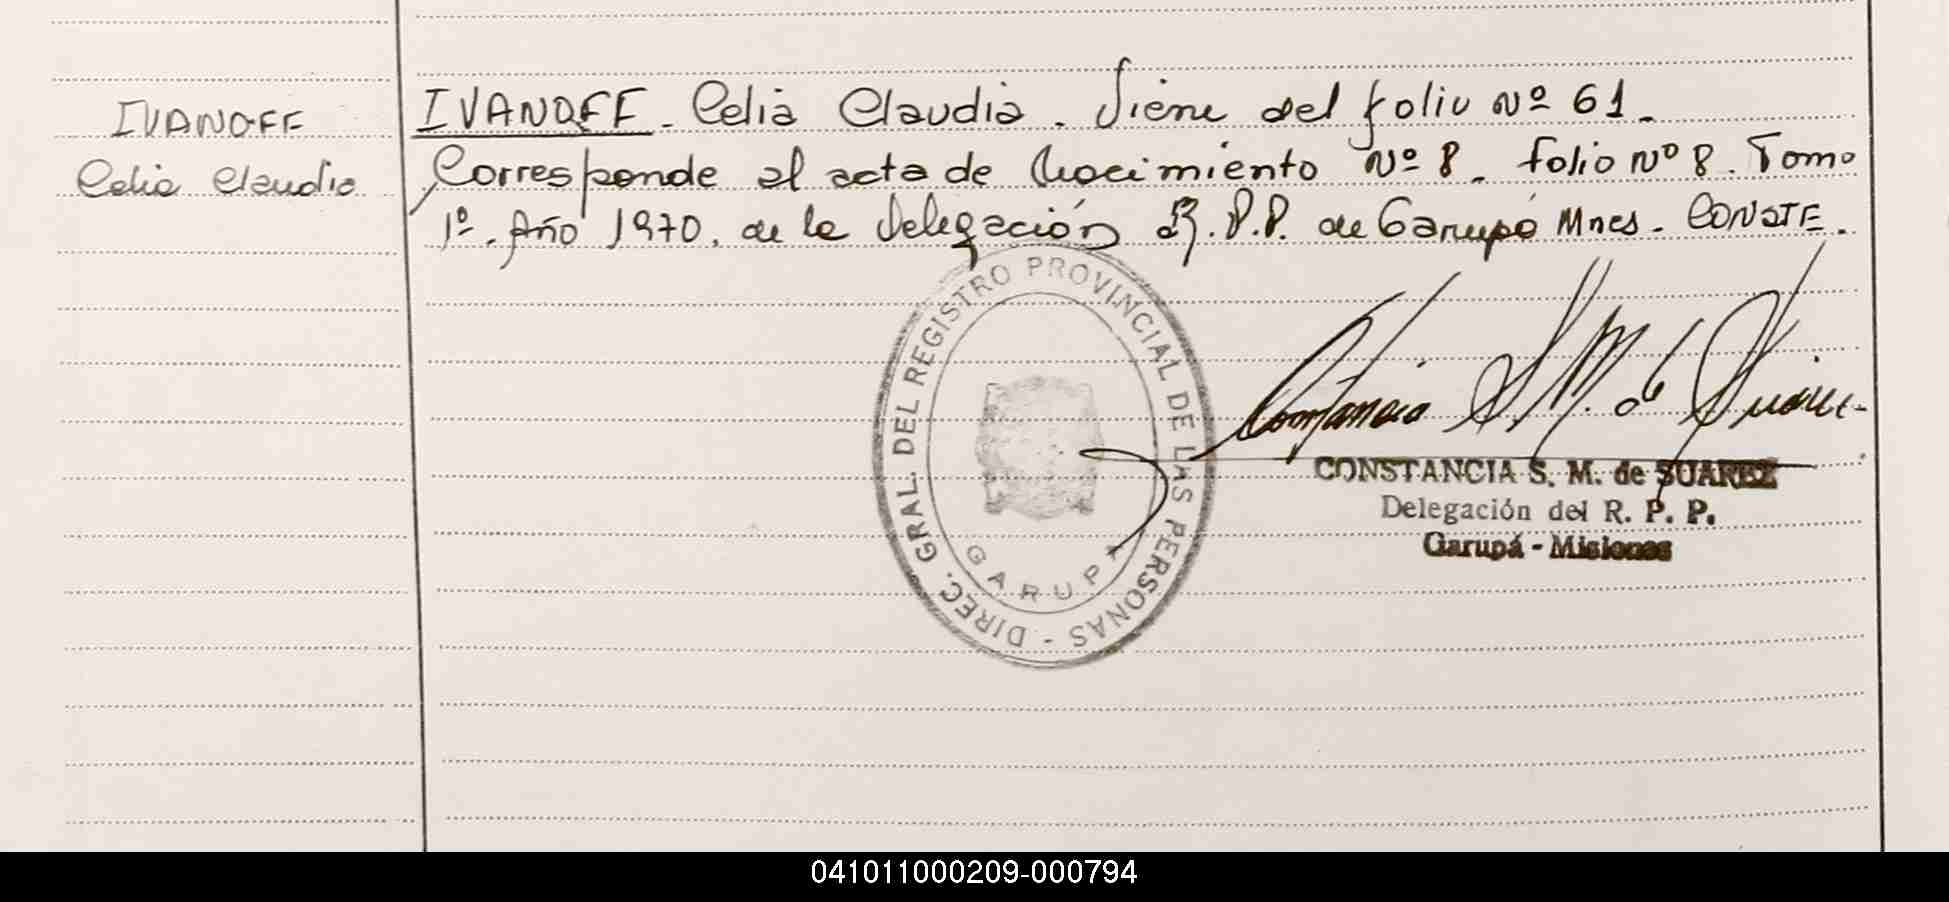 IVANOFF
Celia Claudia
IVANOFF. Celia Claudia. Viene del folio Nº 61.
Corresponde al acta de Nacimiento Nº 8. folio Nº 8. Tomo
1º. Año 1970. de la Delegación R.P.P. de Garupá Mnes. CONSTE.
DIREC. GRAL. DEL REGISTRO PROVINCIAL DE LAS PERSONAS -
GARUPA
Constancia S. M. de Suárez
CONSTANCIA S. M. de SUAREZ
Delegación del R. P. P.
Garupá - Misiones
041011000209-000794